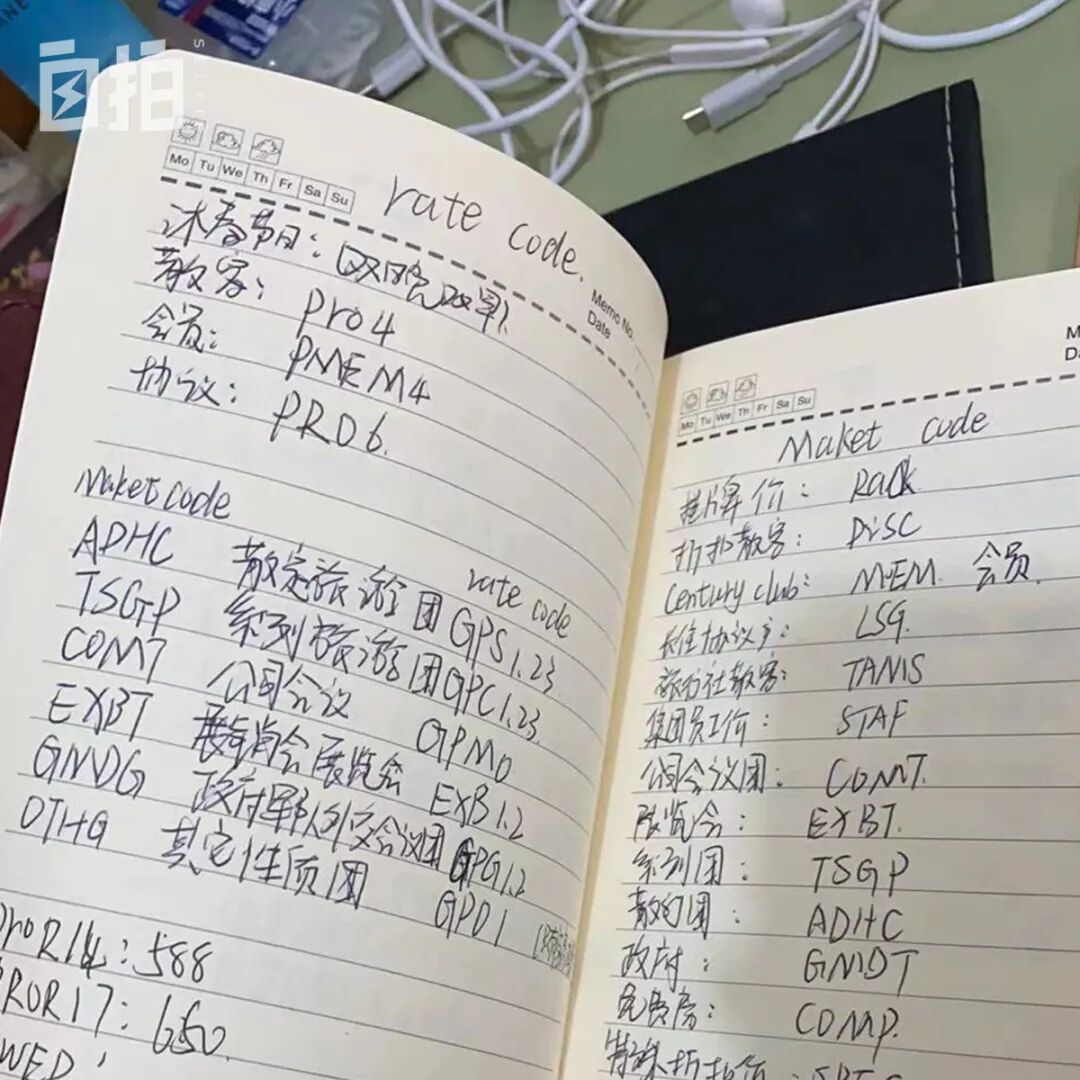 自拍
Mo Tu We Th Fr Sa Su
rate code.
Memo No.
Date
沐春节日：
散客： Pro4
会员： PMEM4
协议： PRO6.
Maket code rate code
ADHC 散客旅游团 GPS1.23
TSGP 系列旅游团 GPC1.23.
COMT 公司会议 GPM0
EXBT 展览会 EXB1.2
GNDG 政府军队外交会议团 GPG1.2
OTHG 其它性质团 GPO1
ProR14：588
PROR17：650.
Mo Tu We Th Fr Sa Su
Maket code
挂牌单价： Rack
折扣散客： DiSC
Century club： MEM. 会员.
长住协议户： LSG.
旅行社散客： TANIS
集团员工价： STAF
公司会议团： COMT.
展览会： EXBT.
系列团： TSGP
散的团： ADHC
政府： GNDT
免费房： COMP.
特殊折扣价：